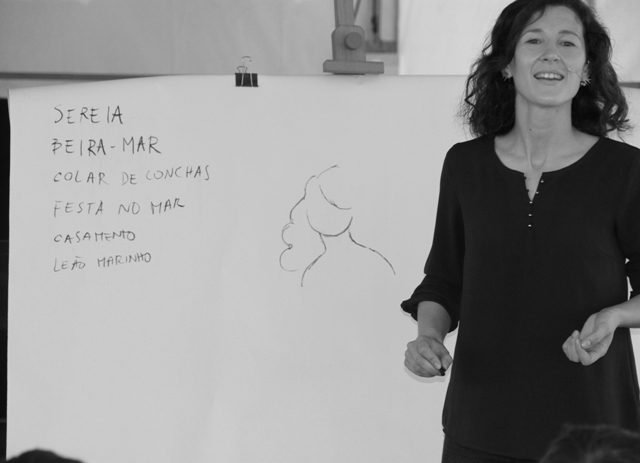 SEREIA
BEIRA-MAR
COLAR DE CONCHAS
FESTA NO MAR
CASAMENTO
LEÃO MARINHO